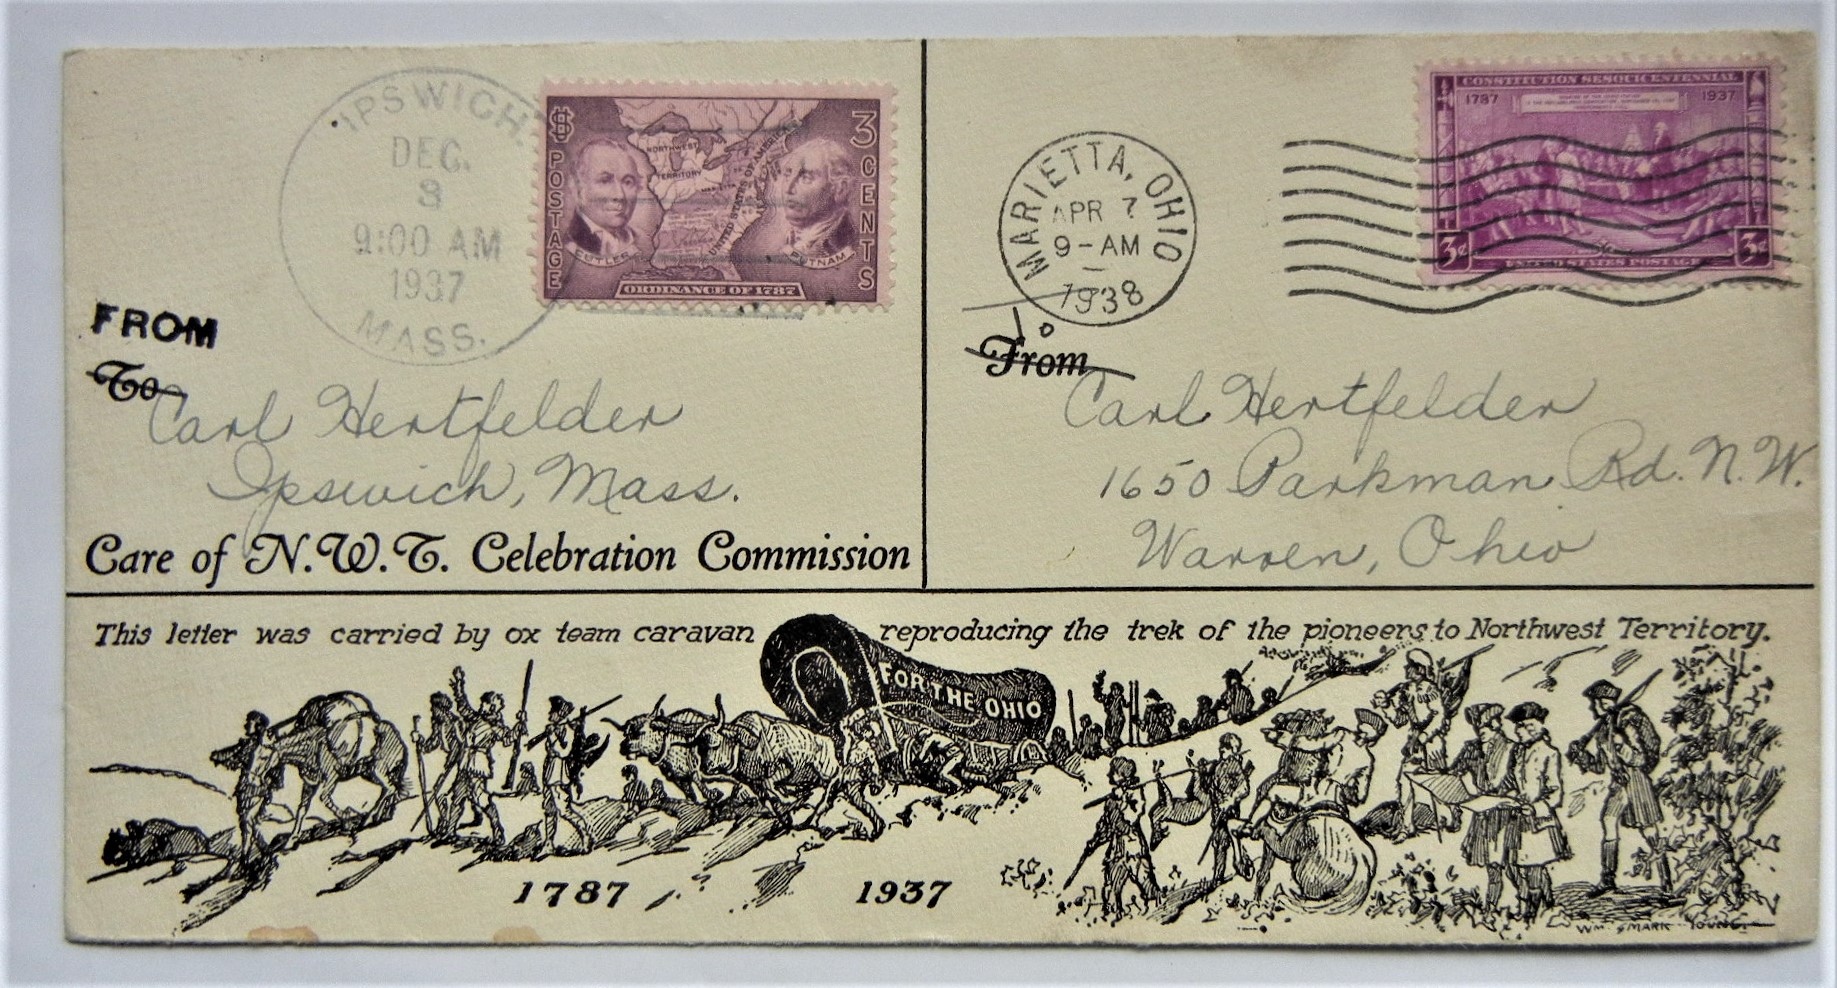 IPSWICH.
DEC.
8
9:00 AM
1937
MASS.
$ 3
POSTAGE
CENTS
NORTHWEST
TERRITORY
UNITED STATES OF AMERICA
CUTLER
PUTNAM
ORDINANCE OF 1787
FROM
To
Carl Hertfelder
Ipswich, Mass.
Care of N.W.T. Celebration Commission
MARIETTA, OHIO
APR 7
9-AM
1938
CONSTITUTION SESQUICENTENNIAL
1787 1937
3¢ UNITED STATES POSTAGE 3¢
To
From
Carl Hertfelder
1650 Parkman Rd. N.W.
Warren, Ohio
This letter was carried by ox team caravan reproducing the trek of the pioneers to Northwest Territory.
FOR THE OHIO
1787 1937
WM SMARK YOUNG